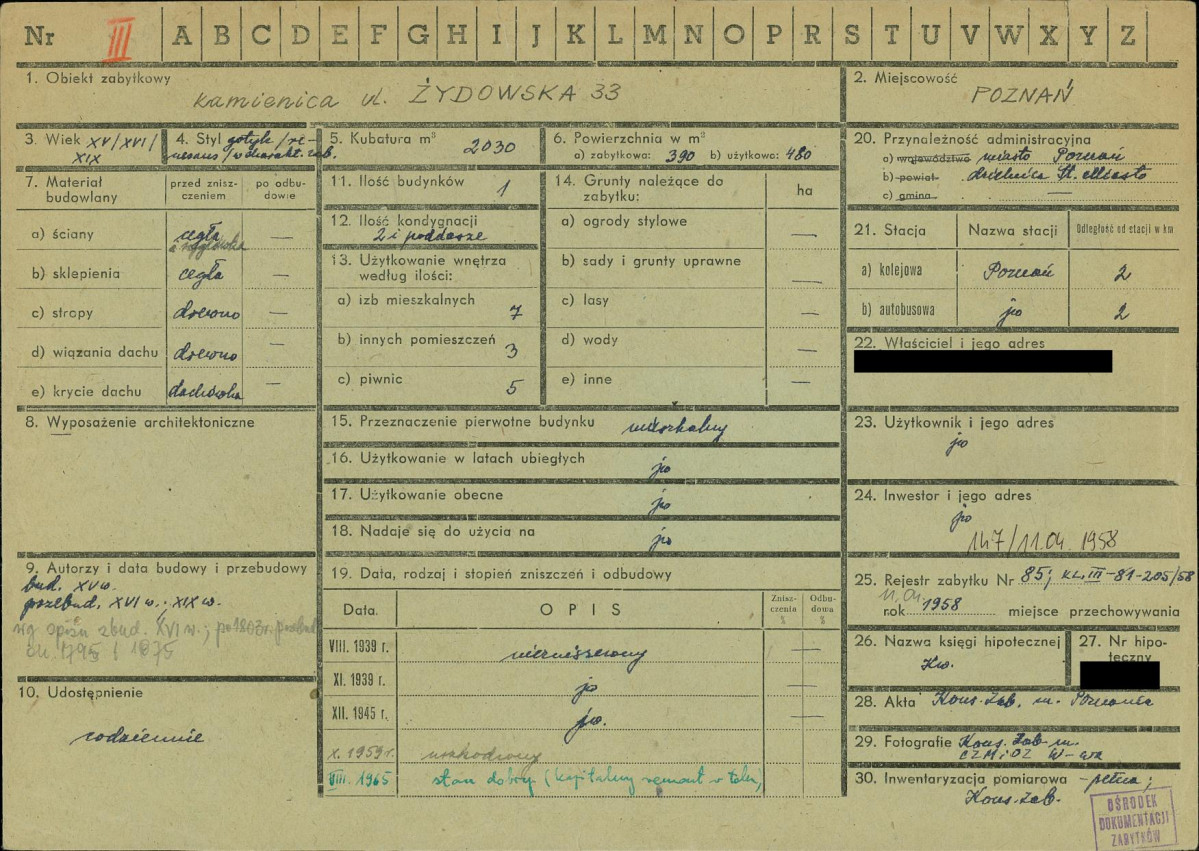 Nr III A B C D E F G H I J K L M N O P R S T U V W X Y Z
1. Obiekt zabytkowy
kamienica ul. ŻYDOWSKA 33
2. Miejscowość
POZNAŃ
3. Wiek XV/XVI/
XIX
4. Styl gotyk/re-
nesans/w charakt. zab.
5. Kubatura m³ 2030
6. Powierzchnia w m²
a) zabytkowa: 390 b) użytkowa: 480
7. Materiał budowlany
przed znisz-
czeniem
po odbu-
dowie
a) ściany cegła —
b) sklepienia cegła —
c) stropy drewno —
d) wiązania dachu drewno —
e) krycie dachu dachówka —
8. Wyposażenie architektoniczne
—
9. Autorzy i data budowy i przebudowy
bud. XV w.
przebud. XVI w.; XIX w.
wg spisu zbud. XVI w.; po 1803 r. przebud.
ok. 1795 i 1875
10. Udostępnienie
codziennie
11. Ilość budynków 1
12. Ilość kondygnacji
2 i poddasze
13. Użytkowanie wnętrza
według ilości:
a) izb mieszkalnych 7
b) innych pomieszczeń 3
c) piwnic 5
14. Grunty należące do
zabytku: ha
a) ogrody stylowe —
b) sady i grunty uprawne —
c) lasy —
d) wody —
e) inne —
15. Przeznaczenie pierwotne budynku mieszkalny
16. Użytkowanie w latach ubiegłych jw
17. Użytkowanie obecne jw
18. Nadaje się do użycia na jw
19. Data, rodzaj i stopień zniszczeń i odbudowy
Data. OPIS
Znisz-
czenia
%
Odbu-
dowa
%
VIII. 1939 r. niezniszczony —
XI. 1939 r. jw —
XII. 1945 r. jw. —
X. 1959 r. uszkodzony
VIII. 1965 stan dobry (kapitalny remont w toku)
20. Przynależność administracyjna
a) województwo miasto Poznań
b) powiat dzielnica St. Miasto
c) gmina —
21. Stacja Nazwa stacji Odległość od stacji w km
a) kolejowa Poznań 2
b) autobusowa jw 2
22. Właściciel i jego adres
23. Użytkownik i jego adres
jw
24. Inwestor i jego adres
jw
147/11.04.1958
25. Rejestr zabytku Nr 85; KL.III-81-205/58
11.04
rok 1958 miejsce przechowywania
26. Nazwa księgi hipotecznej
Kw.
27. Nr hipo-
teczny
28. Akta Kons. Zab. m. Poznania
29. Fotografie Kons. Zab. m.
CZMiOZ W-wa
30. Inwentaryzacja pomiarowa - pełna;
Kons. Zab.
OŚRODEK
DOKUMENTACJI
ZABYTKÓW